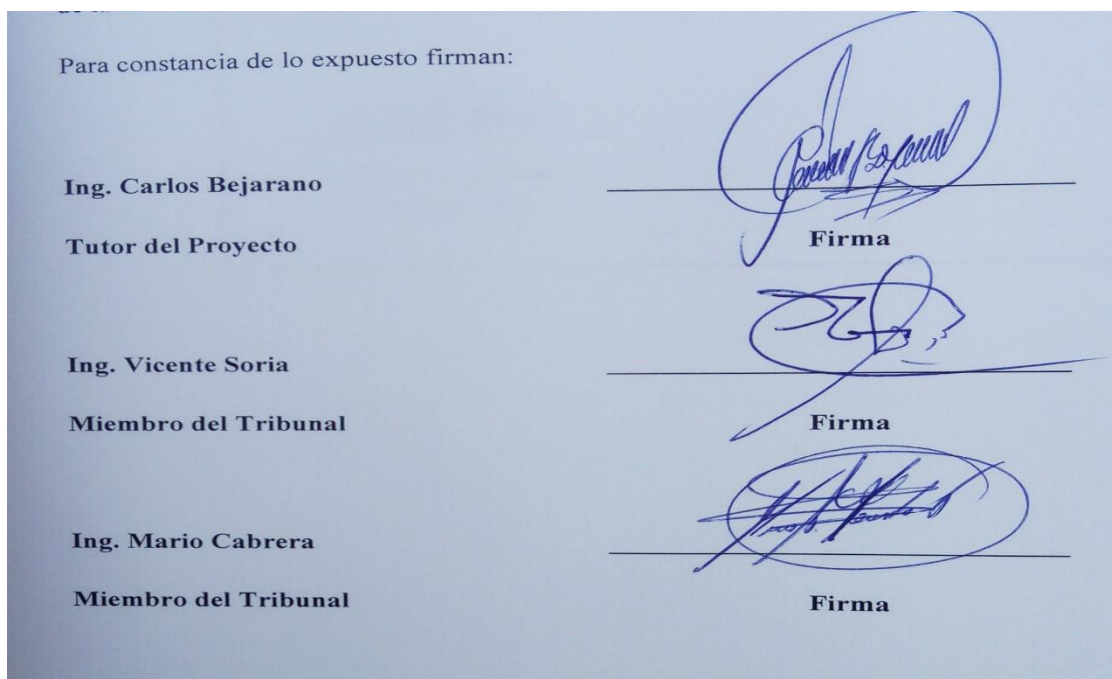 Para constancia de lo expuesto firman:
Ing. Carlos Bejarano
Tutor del Proyecto
Firma
Ing. Vicente Soria
Miembro del Tribunal
Firma
Ing. Mario Cabrera
Miembro del Tribunal
Firma